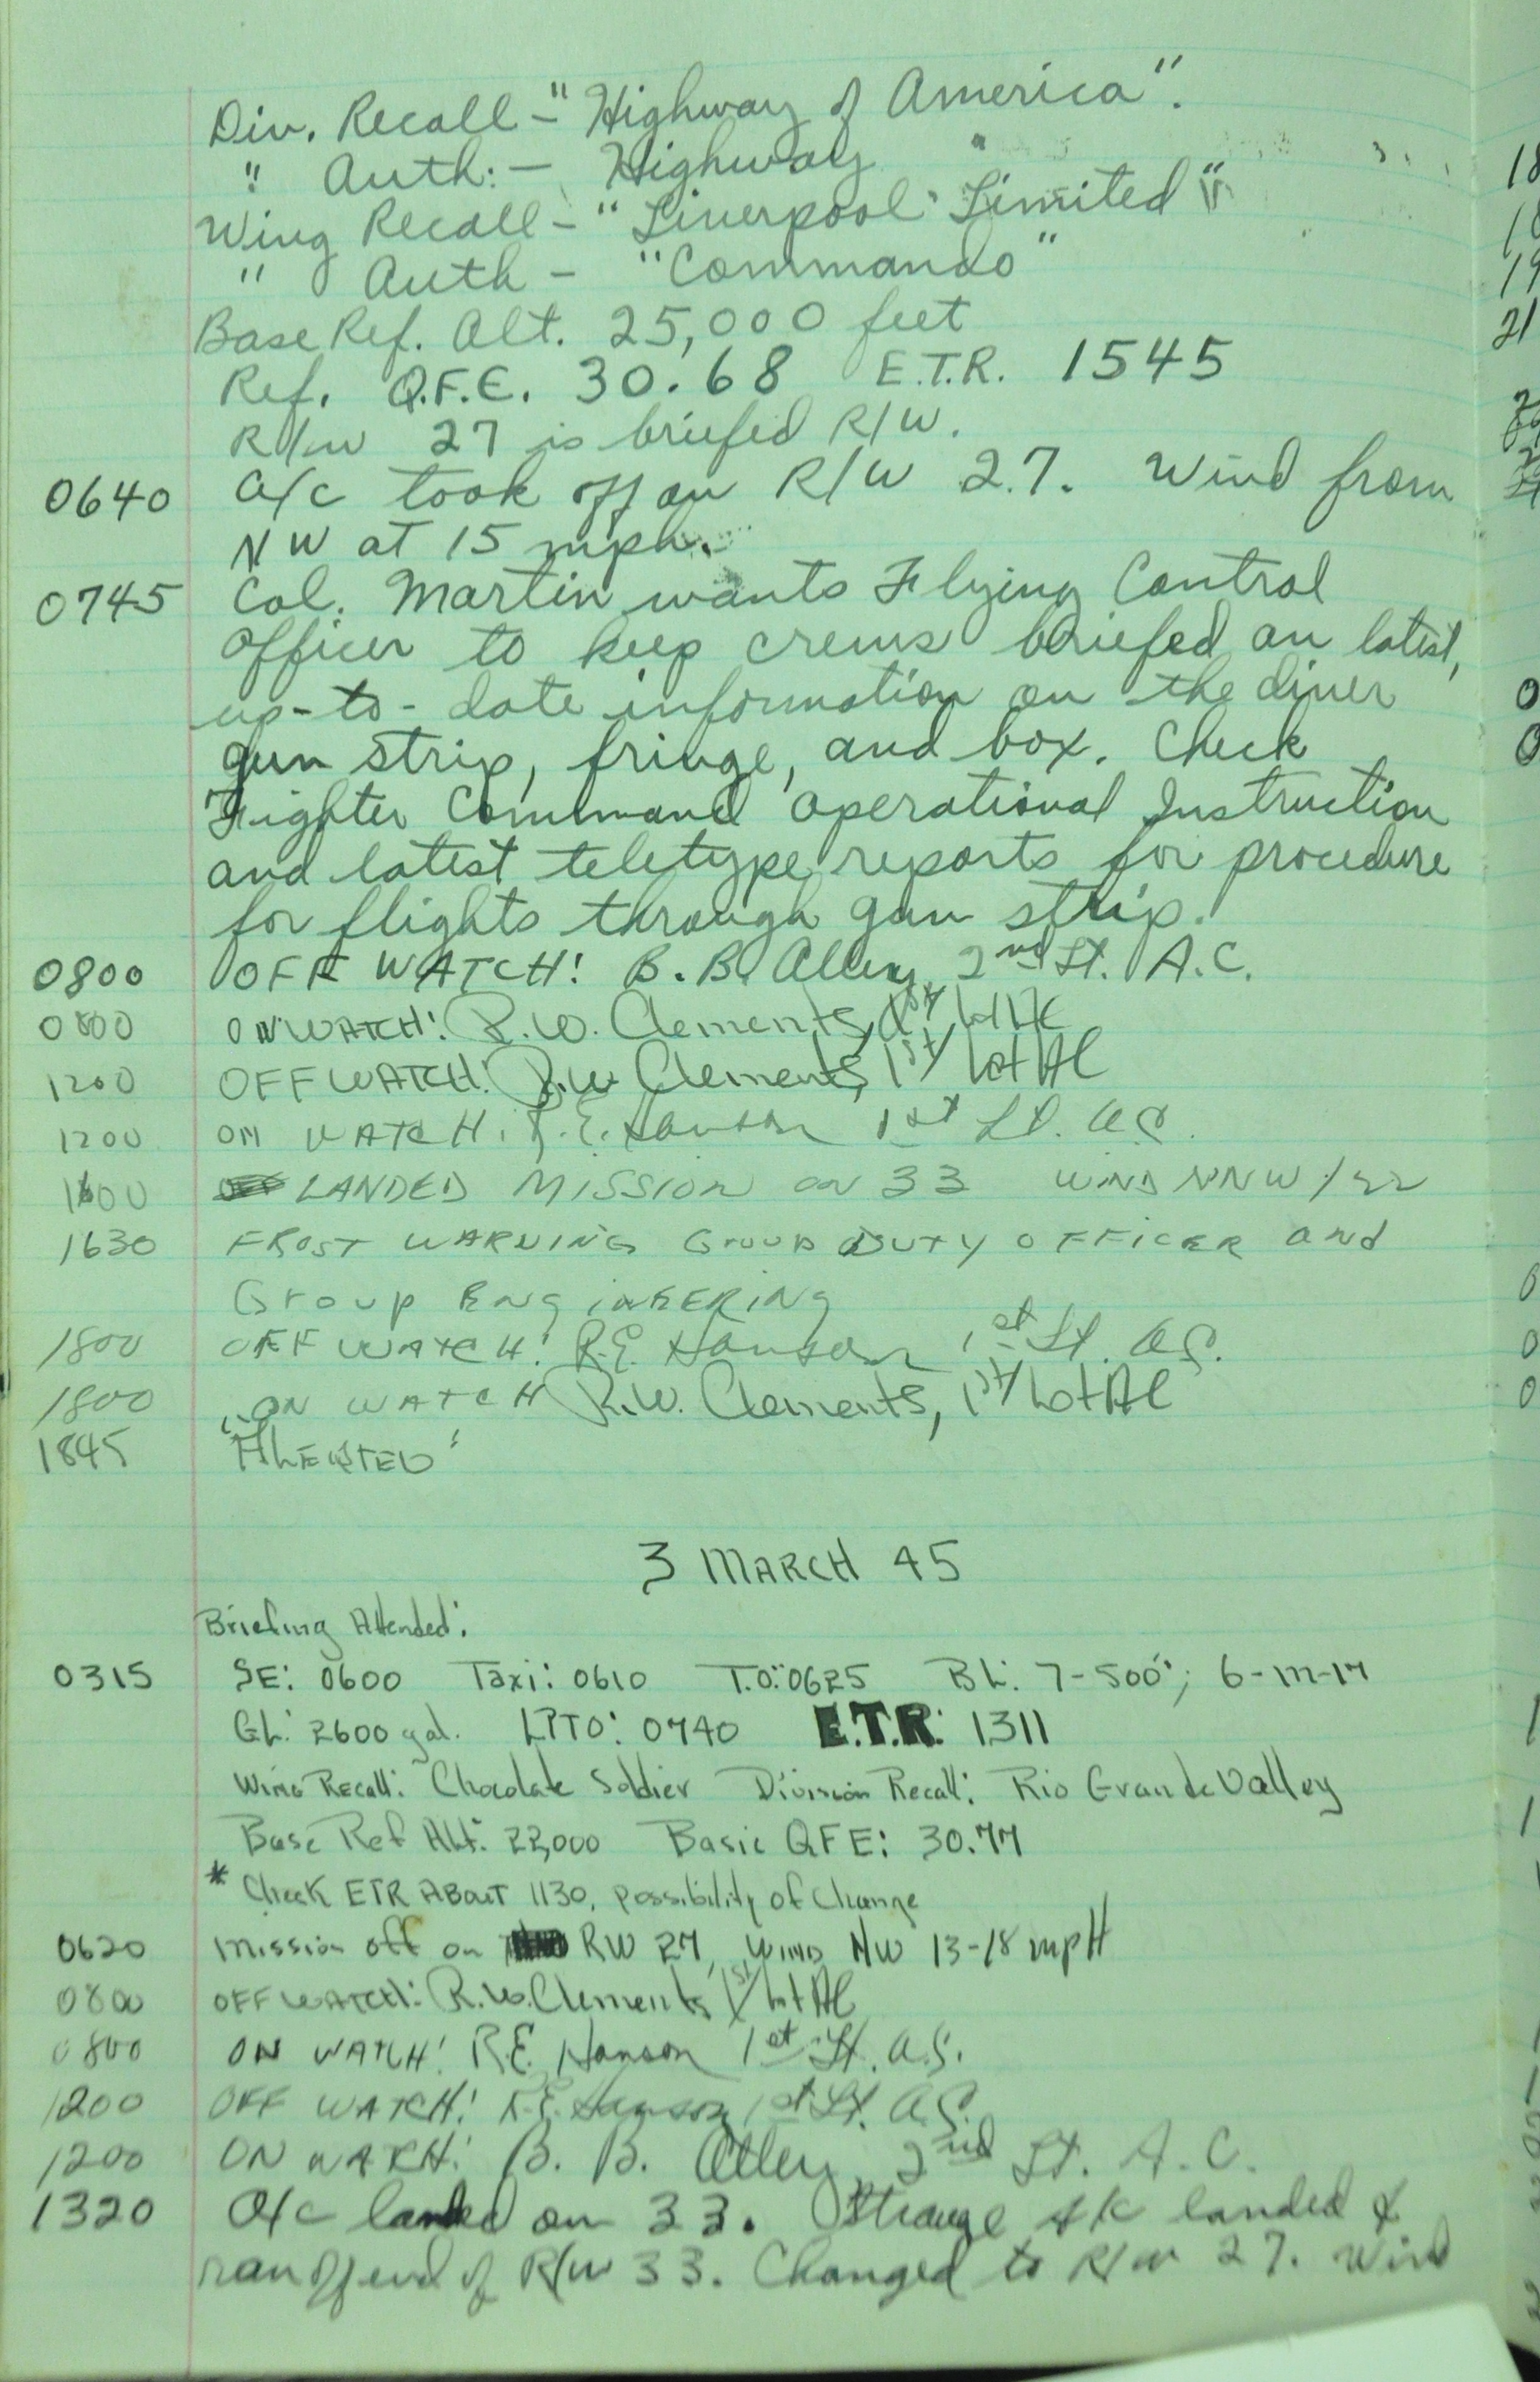 Div. Recall - "Highway of America".
" Auth: - Highway "
Wing Recall - "Liverpool Limited"
" Auth - "Commando"
Base Ref. Alt. 25,000 feet
Ref. Q.F.E. 30.68 E.T.R. 1545
R/W 27 is briefed R/W.
0640 A/c took off on R/W 27. Wind from
NW at 15 mph.
0745 Col. Martin wants Flying Control
Officer to keep crews briefed on latest,
up-to-date information on the diver
gun strip, fringe, and box. Check
Fighter Command Operational Instruction
and latest teletype reports for procedure
for flights through gun strip.
0800 OFF WATCH: B. B. Alley, 2nd Lt. A.C.
0800 ON WATCH: R.W. Clements, 1st Lt AC
1200 OFF WATCH: R.W. Clements, 1st Lt AC
1200 ON WATCH: R.E. Hanson 1st Lt. A.C.
1600 LANDED MISSION ON 33 WIND NNW/22
1630 FROST WARNING Group DUTY OFFICER and
Group ENGINEERING
1800 OFF WATCH: R.E. Hanson 1st Lt. A.C.
1800 ON WATCH R.W. Clements, 1st Lt AC
1845 "ALERTED"
3 MARCH 45
Briefing Attended:
0315 SE: 0600 Taxi: 0610 T.O: 0625 BL: 7-500'; 6-M-17
GL: 2600 gal. LPTO: 0740 E.T.R: 1311
Wing Recall: Chocolate Soldier Division Recall: Rio Grande Valley
Base Ref Alt: 22,000 Basic QFE: 30.77
* Check ETR About 1130, possibility of Change
0620 Mission off on RW 27, WIND NW 13-18 mpH
0800 OFF WATCH: R.W. Clements 1st Lt AC
0800 ON WATCH: R.E. Hanson 1st Lt. A.C.
1200 OFF WATCH: R.E. Hanson 1st Lt. A.C.
1200 ON WATCH: B. B. Alley, 2nd Lt. A.C.
1320 A/c landed on 33. Strange A/C landed &
ran off end of R/W 33. Changed to R/W 27. Wind